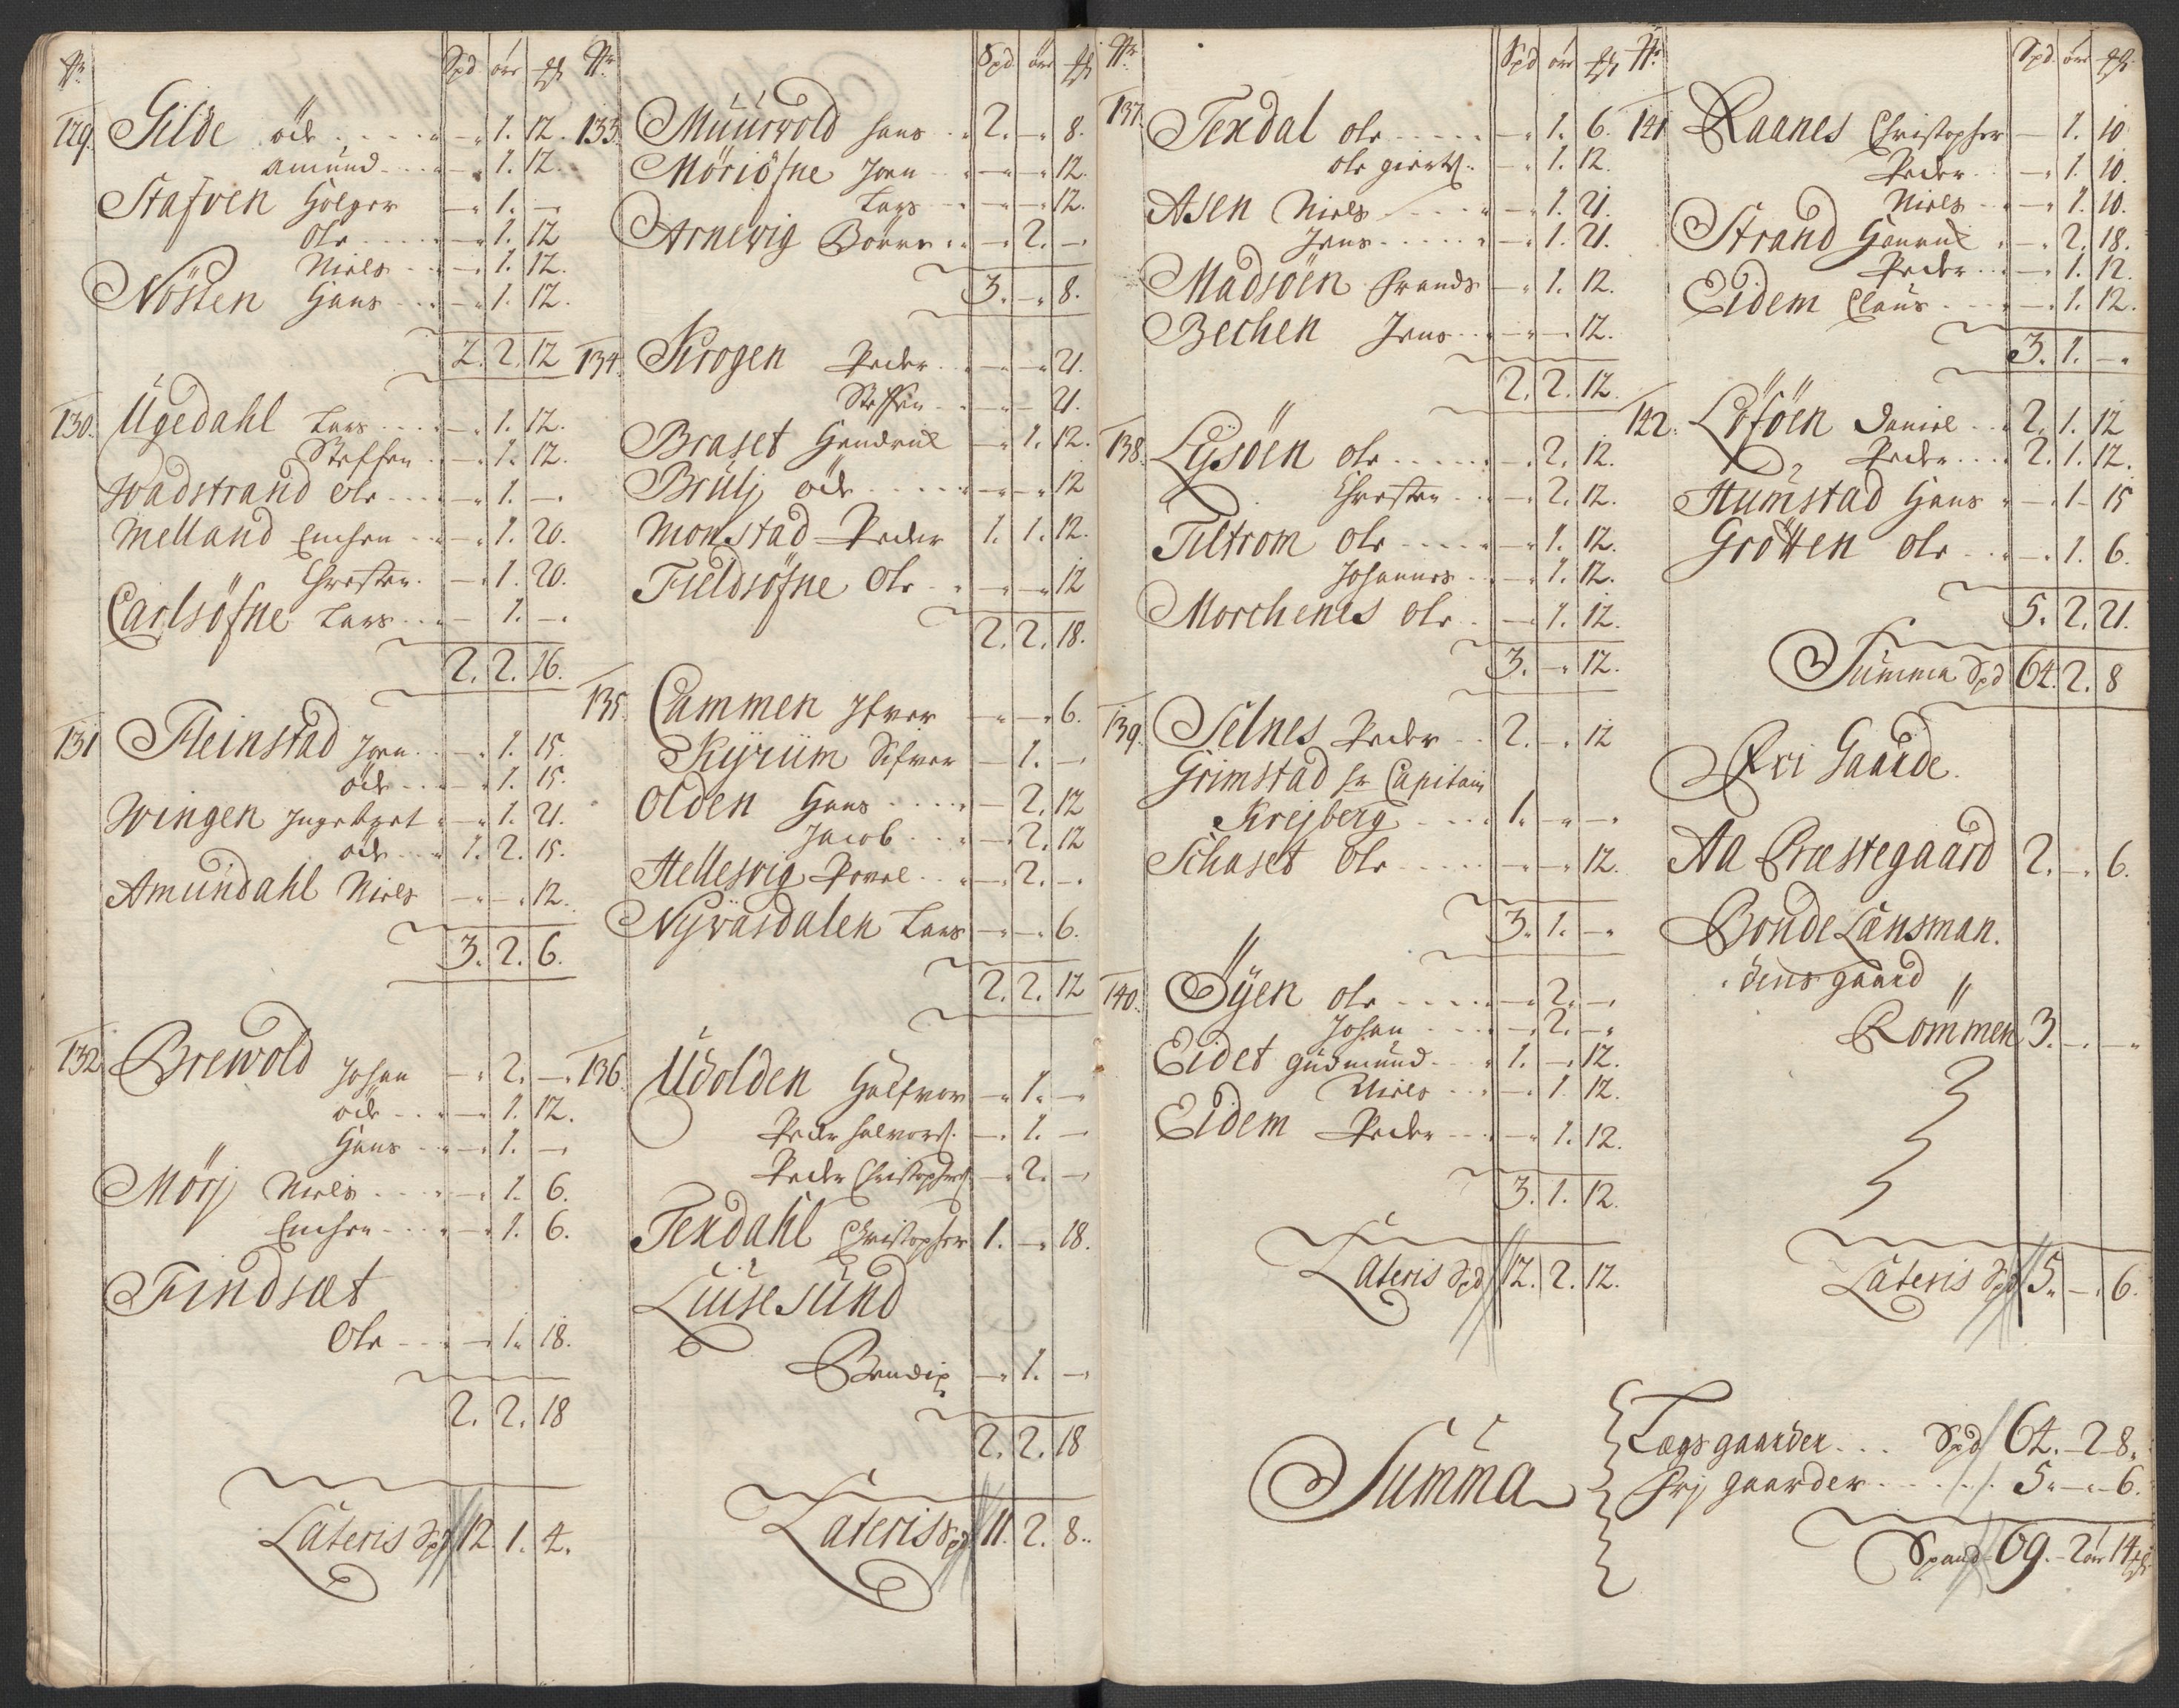 Nr. Spd ör mk
129. Gilde öde . . . . - 1. 12.
amund . . . - 1. 12.
Stafven Holger - 1. -
Ole . . . . - 1. 12
Niels . . - 1. 12.
Nösten Hans . . - 1. 12.
2. 2. 12
130. Ugedahl Lars . . . - 1. 12.
Steffen . - 1. 12.
Wadstrand Ole . . . - 1. -
Melland Encken . . - 1. 20.
Christen . - 1. 20.
Carlsöfne Lars . . . - 1. -
2. 2. 16.
131 Fleinstad Joen . . - 1. 15.
öde . . . - 1. 15.
Wingen Ingebret . - 1. 21.
öde . . . 1. 2. 15.
Amundahl Niels - - 12.
3. 2. 6.
132 Brewold Johan - 2. -
öde . . . - 1. 12.
Hans . . - 1. -
Mörj Niels . . . - 1. 6.
Encken . . . - 1. 6.
Findsæt
Ole . . . - 1. 18.
2. 2. 18
Lateris Spd 12. 1. 4.
Nr. Spd ör mk
133. Muurvold Hans . . 2. - 8.
Möriöfne Joen . . - - 12.
Lars . . - - 12.
Arnevig Börre . . - 2. -
3. - 8.
134. Krogen Peder . . - - 21.
Steffen . . - - 21.
Braset Hendrik - 1. 12.
Brulj öde . . . . - - 12
Monstad Peder 1. 1. 12.
Fieldsöfne Ole . . - - 12
2. 2. 18.
135. Cammen Ifver - - 6.
Kyrüm Sifver - 1. -
Olden Hans . . . . - 2. 12
Jacob . . . - 2. 12
Hellesvig Povel . . - 2. -
Nyvasdalen Lars - - 6.
2. 2. 12
136. Udolden Halfvor - 1. -
Peder Halvors. - 1. -
Peder Christophers. - 2. -
Texdahl Christopher 1. - 18.
Luusesund
Bendix - 1. -
2. 2. 18
Lateris Spd 11. 2. 8.
Nr. Spd ör mk
137. Texdal ole . . . . . - 1. 6.
ole gierts. . - 1. 12.
Asen Niels . . . . - 1. 21.
Jens . . . . . - 1. 21.
Madsöen Frands - 1. 12.
Bechen Jens . . . - - 12.
2. 2. 12.
138. Lysöen ole . . . . . - 2. 12.
Christen . . - 2. 12.
Tiltrom Ole . . . . - 1. 12.
Johannes . . - 1. 12.
Morchenes ole . - 1. 12.
3. - 12.
139. Selnes Peder . . 2. - 12
Grimstad hr Capitain
Krejberg . . . . 1. - -
Schaset Ole . . . . - - 12.
3. 1. -
140. Öyen ole . . . . - 2. -
Johan . . . . - 2. -
Eidet gudmund . . . 1. - 12.
Niels . . . - 1. 12.
Eidem Peder . . . - 1. 12.
3. 1. 12.
Lateris Spd 12. 2. 12.
Nr. Spd. ör mk
141 Raanes Christopher - 1. 10
Peder . . - 1. 10.
Niels . . - 1. 10.
Strand Henrik . - 2. 18.
Peder . . - 1. 12.
Eidem Claus . . . - 1. 12.
3. 1. -
142. Löföen Daniel . . 2. 1. 12
Peder . . . 2. 1. 12.
Humstad Hans . - 1 - 15
Grötten Ole . . - 1. 6.
5. 2. 21.
Summa Spd 64. 2. 8
Fri Gaarde.
Aa Præstegaard 2. - 6.
Bonde Länsman.
dens gaard
Rommen 3. - -
Lateris Spd 5. - 6.
Summa
Lægs gaarder . . . Spd 64. - 2 - 8.
Frj gaarder . . . . . 5. - - 6.
Spand 69. - 2 ör 14 mk